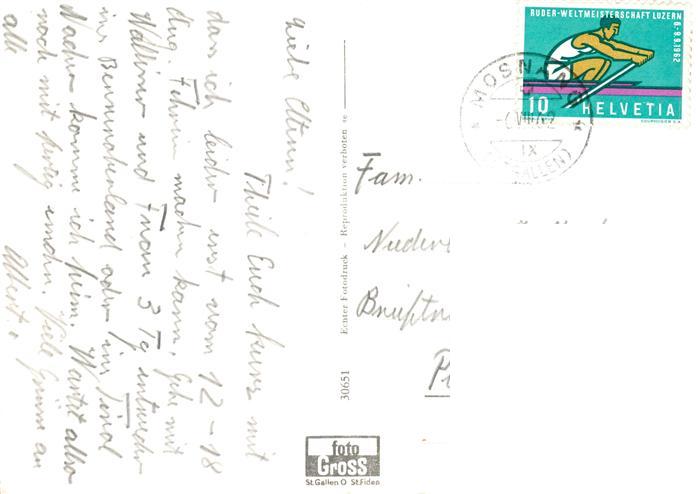 Liebe Eltern!
Teile Euch kurz mit
dass ich leider erst vom 12-18
Aug. Ferien machen kann. Gehe mit
und Frau 3 Tg entweder
ins oder ins Tirol
Nachher komme ich heim. Wartet also
noch mit fertig emden. Viele Grüsse an
alle Albert.
Echter Fotodruck – Reproduktion verboten
30651
foto
GROSS
St.Gallen O St.Fiden
RUDER-WELTMEISTERSCHAFT LUZERN
6.-9.9.1962
10 HELVETIA
MOSN
IX
GALLEN)
Fam.